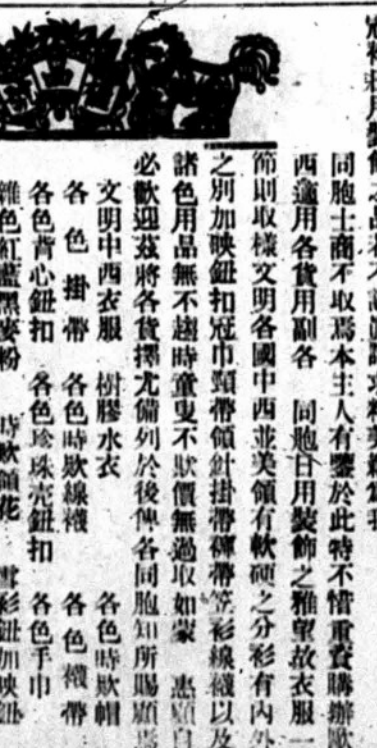 同胞士商不取焉本主人有鑒於此特不惜重資購辦歐
西適用各貨用副各 同胞日用裝飾之雅望故衣服一
節則取樣文明各國中西並美領有軟硬之分衫有內外
之別加映鈕扣冠巾頸帶領針掛帶褲帶笠衫線襪以及
諸色用品無不趨時童叟不欺價無過取如蒙 惠顧自
必歡迎茲將各貨擇尤備列於後俾各同胞知所賜顧焉
文明中西衣服 樹膠水衣 各色時欵帽
各色掛帶 各色時欵線襪 各色襪帶
各色背心鈕扣 各色珍珠壳鈕扣 各色手巾
雜色紅藍黑麥粉 時欵領花 雪衫鈕加映鈕